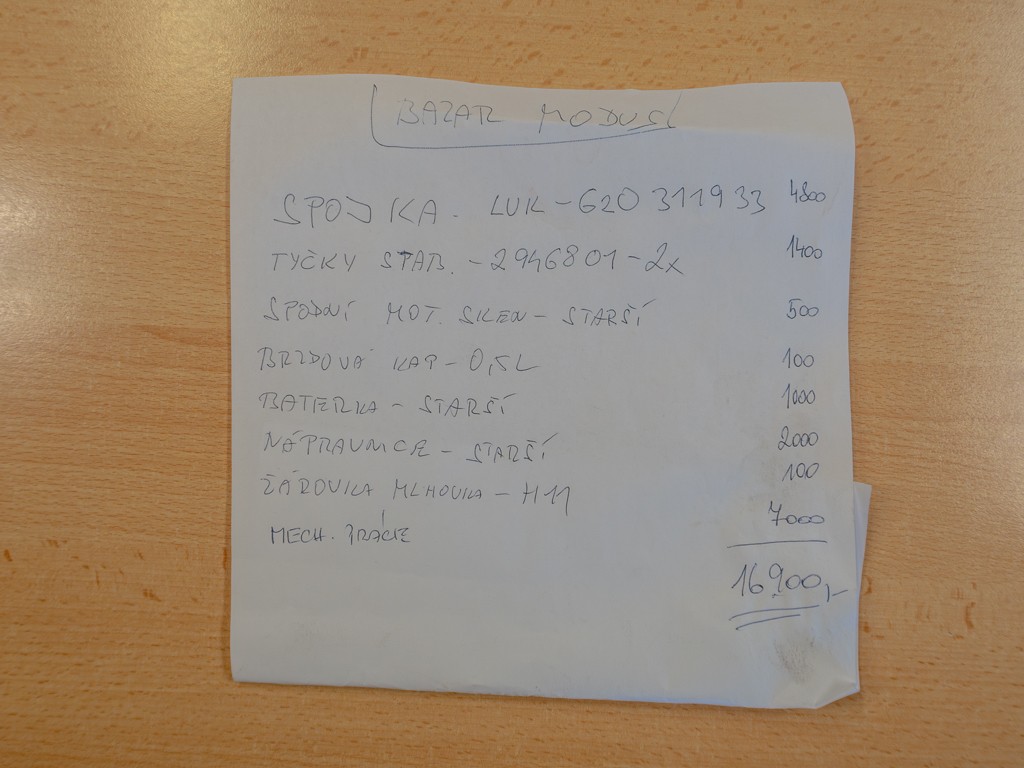 BAZAR MODUS
SPOJKA. LUK - 620 3119 33 4800
TYČKY STAB. - 2946801 - 2x 1400
SPODNÍ MOT. SKLEN - STARŠÍ 500
BRZDOVÁ KAP - 0,5L 100
BATERKA - STARŠÍ 1000
NÁPRAVNICE - STARŠÍ 2000
ŽÁROVKA MLHOVKA - H11 100
MECH. PRÁCE 7000
16900,-